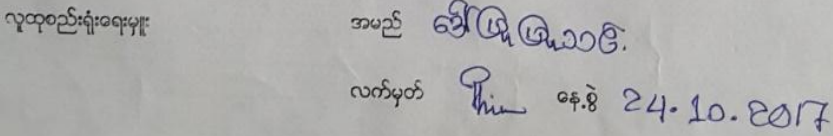 လူထုစည်းရုံးရေးမှူး အမည် ဒေါ်ဖြူဖြူသင်း
လက်မှတ် Thin နေ့စွဲ 24.10.2017